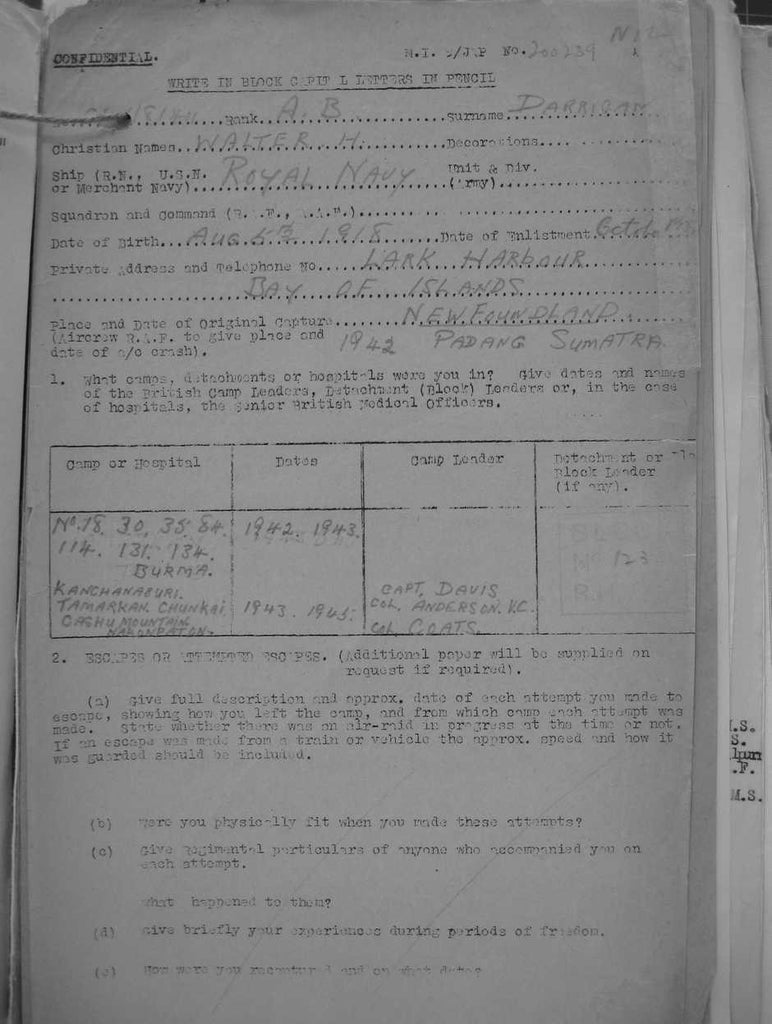 CONFIDENTIAL.
M.I. 9/JAP No. 200239
WRITE IN BLOCK CAPITAL LETTERS IN PENCIL
Rank. A. B. Surname DARRIGAN
Christian Names.. WALTER H. Decorations....
Ship (R.N., U.S.N. Unit & Div.
or Merchant Navy).. ROYAL NAVY (Army)....
Squadron and Command (R.A.F., A.A.F.)....
Date of Birth... AUG. 6TH 1918 ...Date of Enlistment. October
Private Address and Telephone No.... LARK HARBOUR
BAY OF ISLANDS
Place and Date of Original Capture....... NEWFOUNDLAND
(Aircrew R.A.F. to give place and 1942 PADANG SUMATRA.
date of a/c crash).
1. What camps, detachments or hospitals were you in? Give dates and names
of the British Camp Leaders, Detachment (Block) Leaders or, in the case
of hospitals, the Senior British Medical Officers.
Camp or Hospital Dates Camp Leader Detachment or
Block Leader
(if any).
No. 18. 30. 35. 84. 1942. 1943.
114. 131. 134. 123
BURMA.
KANCHANABURI. CAPT. DAVIS
TAMARKAN. CHUNKAI 1943. 1945. COL. ANDERSON. V.C.
CASHU MOUNTAIN COL COATS.
NAKONPATON.
2. ESCAPES OR ATTEMPTED ESCAPES. (Additional paper will be supplied on
request if required).
(a) Give full description and approx. date of each attempt you made to
escape, showing how you left the camp, and from which camp each attempt was
made. State whether there was an air-raid in progress at the time or not.
If an escape was made from a train or vehicle the approx. speed and how it
was guarded should be included.
(b) Were you physically fit when you made these attempts?
(c) Give Regimental particulars of anyone who accompanied you on
each attempt.
What happened to them?
(d) Give briefly your experiences during periods of freedom.
(e) How were you recaptured and on what dates
S.
.F.
M.S.